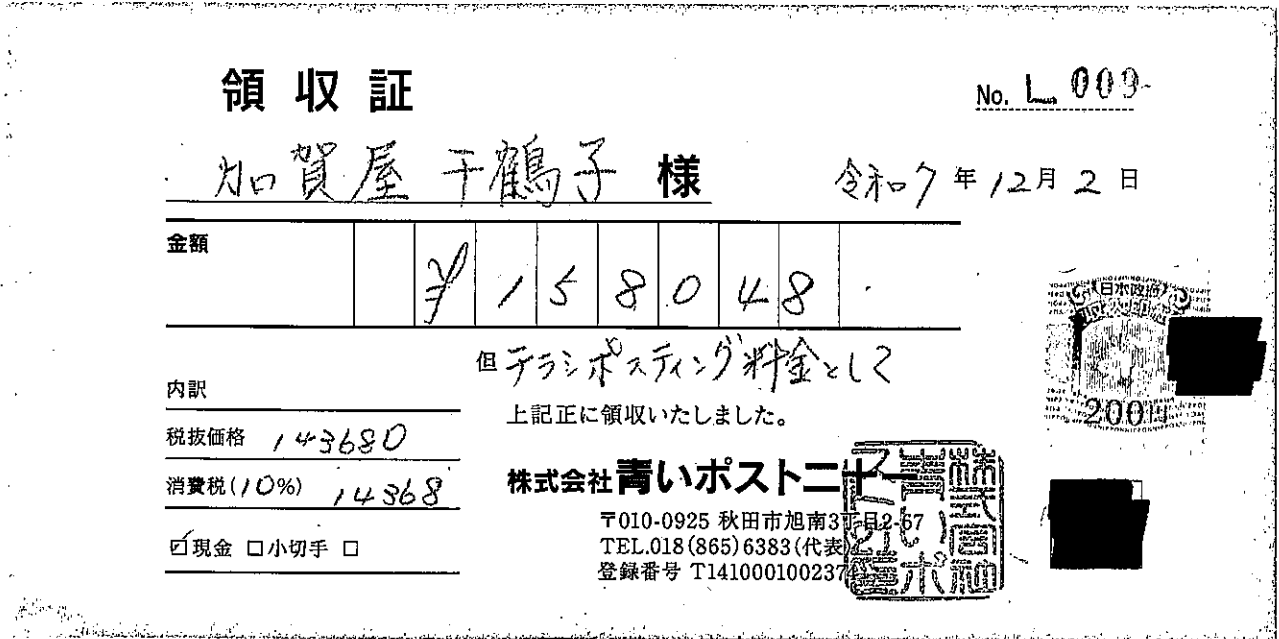 領収証
No. L 009
加賀屋 千鶴子 様
令和7年12月2日
金額 ¥158048
但チラシポスティング料金として
上記正に領収いたしました。
内訳
税抜価格 143680
消費税(10%) 14368
☑現金 □小切手 □
株式会社青いポストニ十一
〒010-0925 秋田市旭南3丁目2-67
TEL.018(865)6383(代表)
登録番号 T1410001002374
日本政府
200円